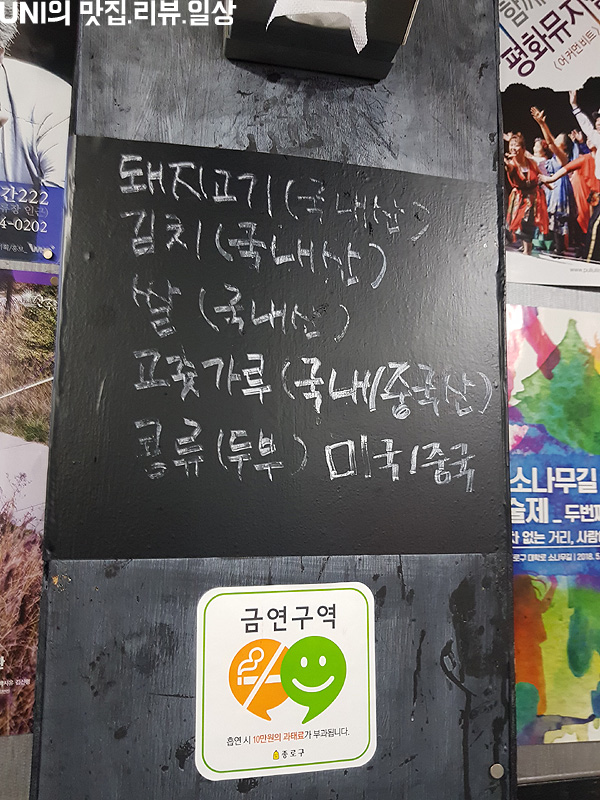 UNI의 맛집.리뷰.일상
돼지고기(국내산)
김치(국내산)
쌀(국내산)
고춧가루(국내/중국산)
콩류(두부) 미국/중국
금연구역
흡연 시 10만원의 과태료가 부과됩니다.
종로구
간222
4-0202
함께
평화뮤지
(어커먼비트)
소나무길
술제_두번째
차 없는 거리, 사람
로구 대학로 소나무길 | 2018. 5.